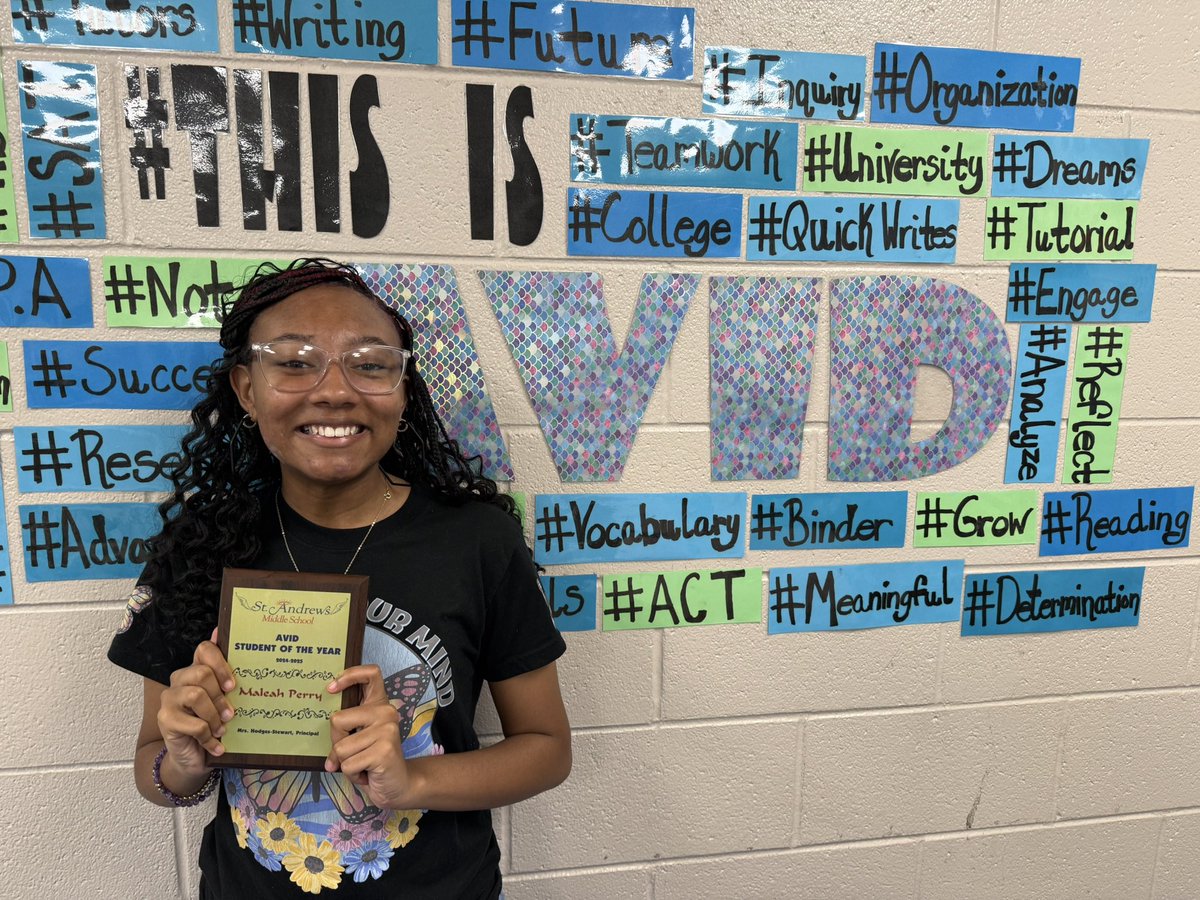 #Tutors
#Writing
#Future
#SAT
#THIS IS
#Inquiry
#Organization
#Teamwork
#University
#Dreams
#College
#QuickWrites
#Tutorial
P.A
#Not
AVID
#Engage
#Succe
#Analyze
#Reflect
#Rese
#Adva
#Vocabulary
#Binder
#Grow
#Reading
#ACT
#Meaningful
#Determination
UR MIND
St. Andrews
Middle School
AVID
STUDENT OF THE YEAR
2024-2025
Maleah Perry
Mrs. Hodges-Stewart, Principal